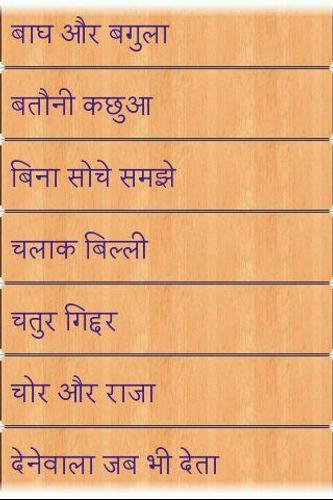 बाघ और बगुला
बतौनी कछुआ
बिना सोचे समझे
चलाक बिल्ली
चतुर गिद्दर
चोर और राजा
देनेवाला जब भी देता